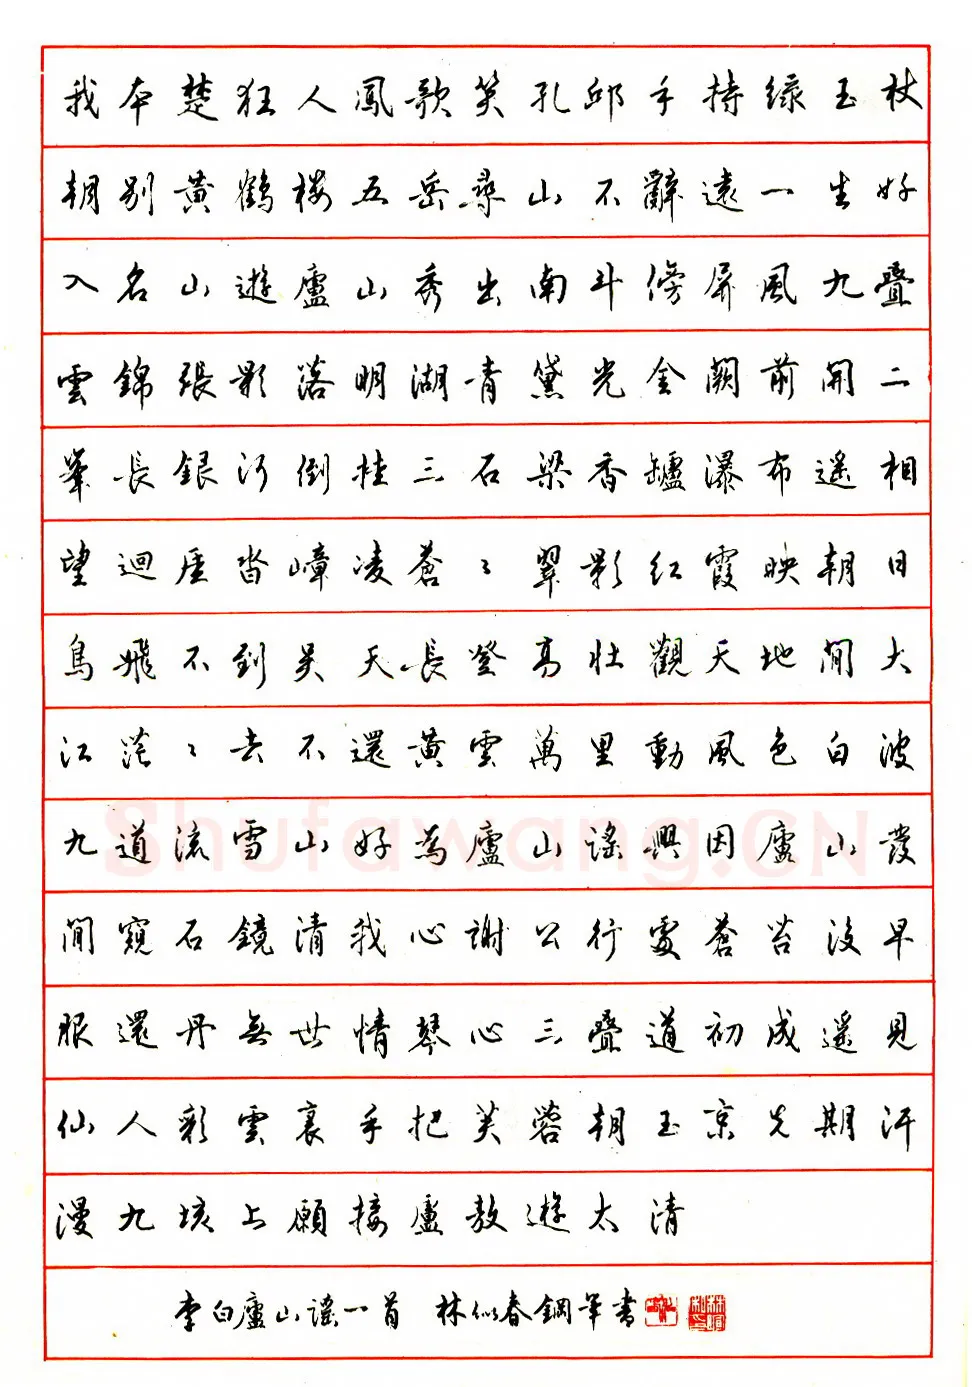 我本楚狂人鳳歌笑孔邱手持綠玉杖
朝别黃鶴樓五岳尋山不辭遠一生好
入名山遊廬山秀出南斗傍屏風九疊
雲錦張影落明湖青黛光金闕前開二
峯長銀河倒挂三石梁香罏瀑布遥相
望迴崖沓嶂凌蒼〻翠影紅霞映朝日
鳥飛不到吴天長登高壯觀天地間大
江茫〻去不還黃雲萬里動風色白波
九道流雪山好為廬山謠興因廬山發
閒窺石鏡清我心謝公行處蒼苔没早
服還丹無世情琴心三疊道初成遥見
仙人彩雲裏手把芙蓉朝玉京先期汗
漫九垓上願接盧敖遊太清
李白廬山謠一首 林似春鋼筆書
Shufawang.CN